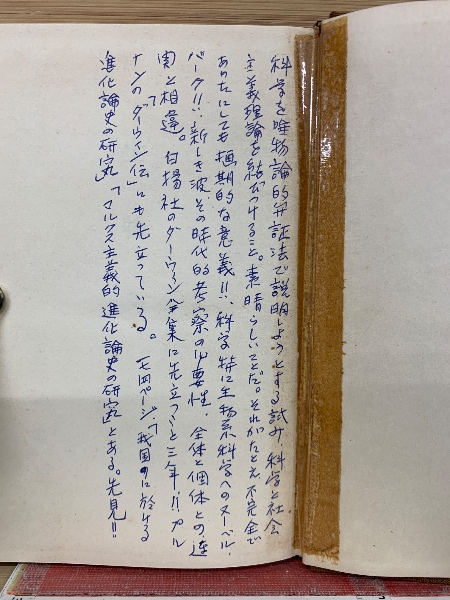 科学を唯物論的弁証法で説明しようとする試み、科学と社会
主義理論を結びつけること。素晴らしいことだ。それがたとえ不完全で
ありたにしても画期的な意義!!、科学特に生物系科学へのヌーベル・
バーグ!!、新しき波その時代的考察の必要性、全体と個体との連
関と相違。白揚社のダーウィン全集に先立つこと三年!!カル
ナンの「ダーウィン伝」にも先立っている。 ページ「我国の於ける
進化論史の研究」「マルクス主義的進化論史の研究」とある。先見!!